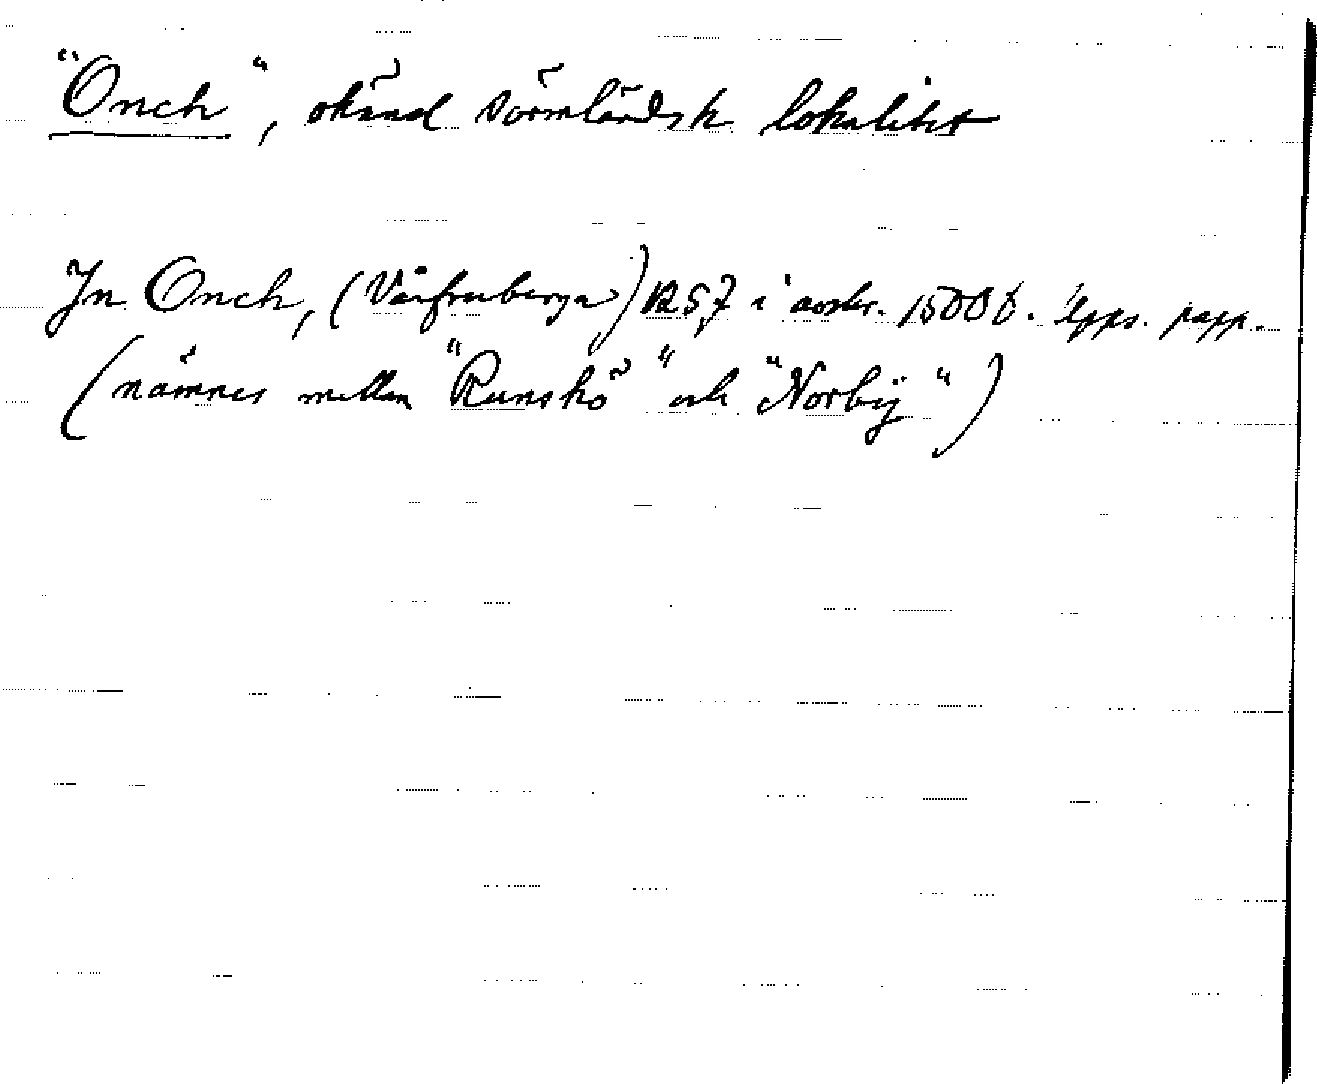 "Onch", okänd sörmländsk lokalitet
In Onch, (Vårfruberga) 1257 i avskr. 1500 t. Upps. papp.
(nämnes mellan "Runskö" och "Norbÿ")